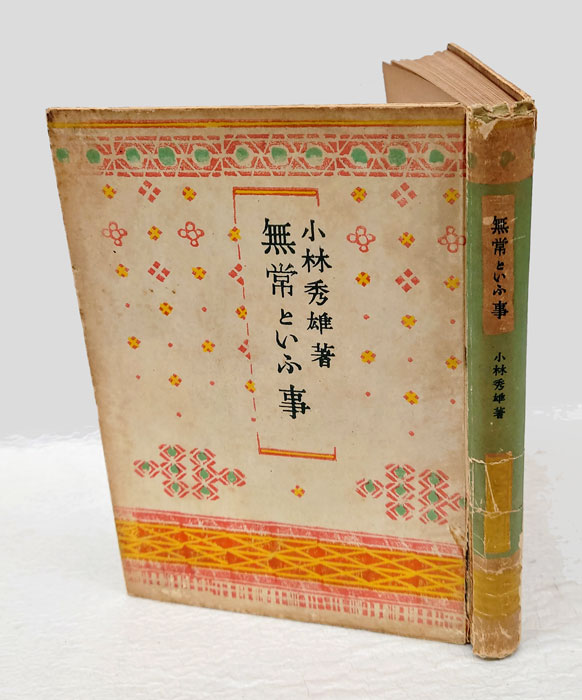 小林秀雄著
無常といふ事
無常といふ事
小林秀雄著